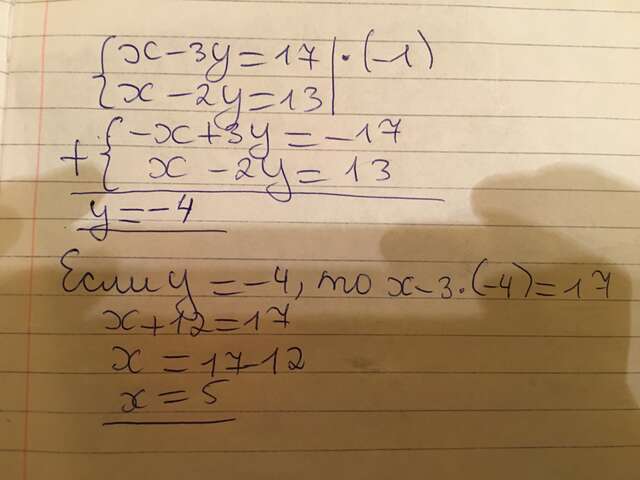 {x-3y=17 |·(-1)
{x-2y=13
+{-x+3y=-17
x-2y=13
y=-4
Если y=-4, то x-3·(-4)=17
x+12=17
x=17-12
x=5